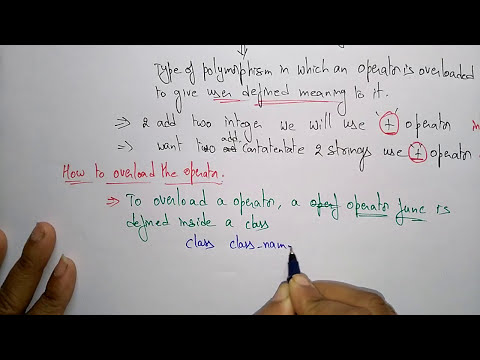 Type of polymorphism in which an operator is overloaded
to give user defined meaning to it.
⇒ 2 add two integer we will use '+' operator
⇒ want add cantatentate 2 strings use + operator
How to overload the operator.
⇒ To overload a operator, a operator func is
defined inside a class
class class-nam